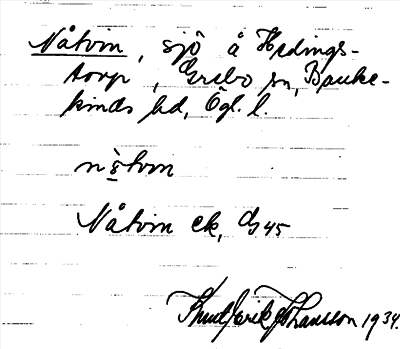 Nåtvin, sjö å Hedings-
torp, Grebo sn, Banke-
kinds hd, Ögl. l.
Nåtvin ek, G 45
Knut Erik Johansson 1934.